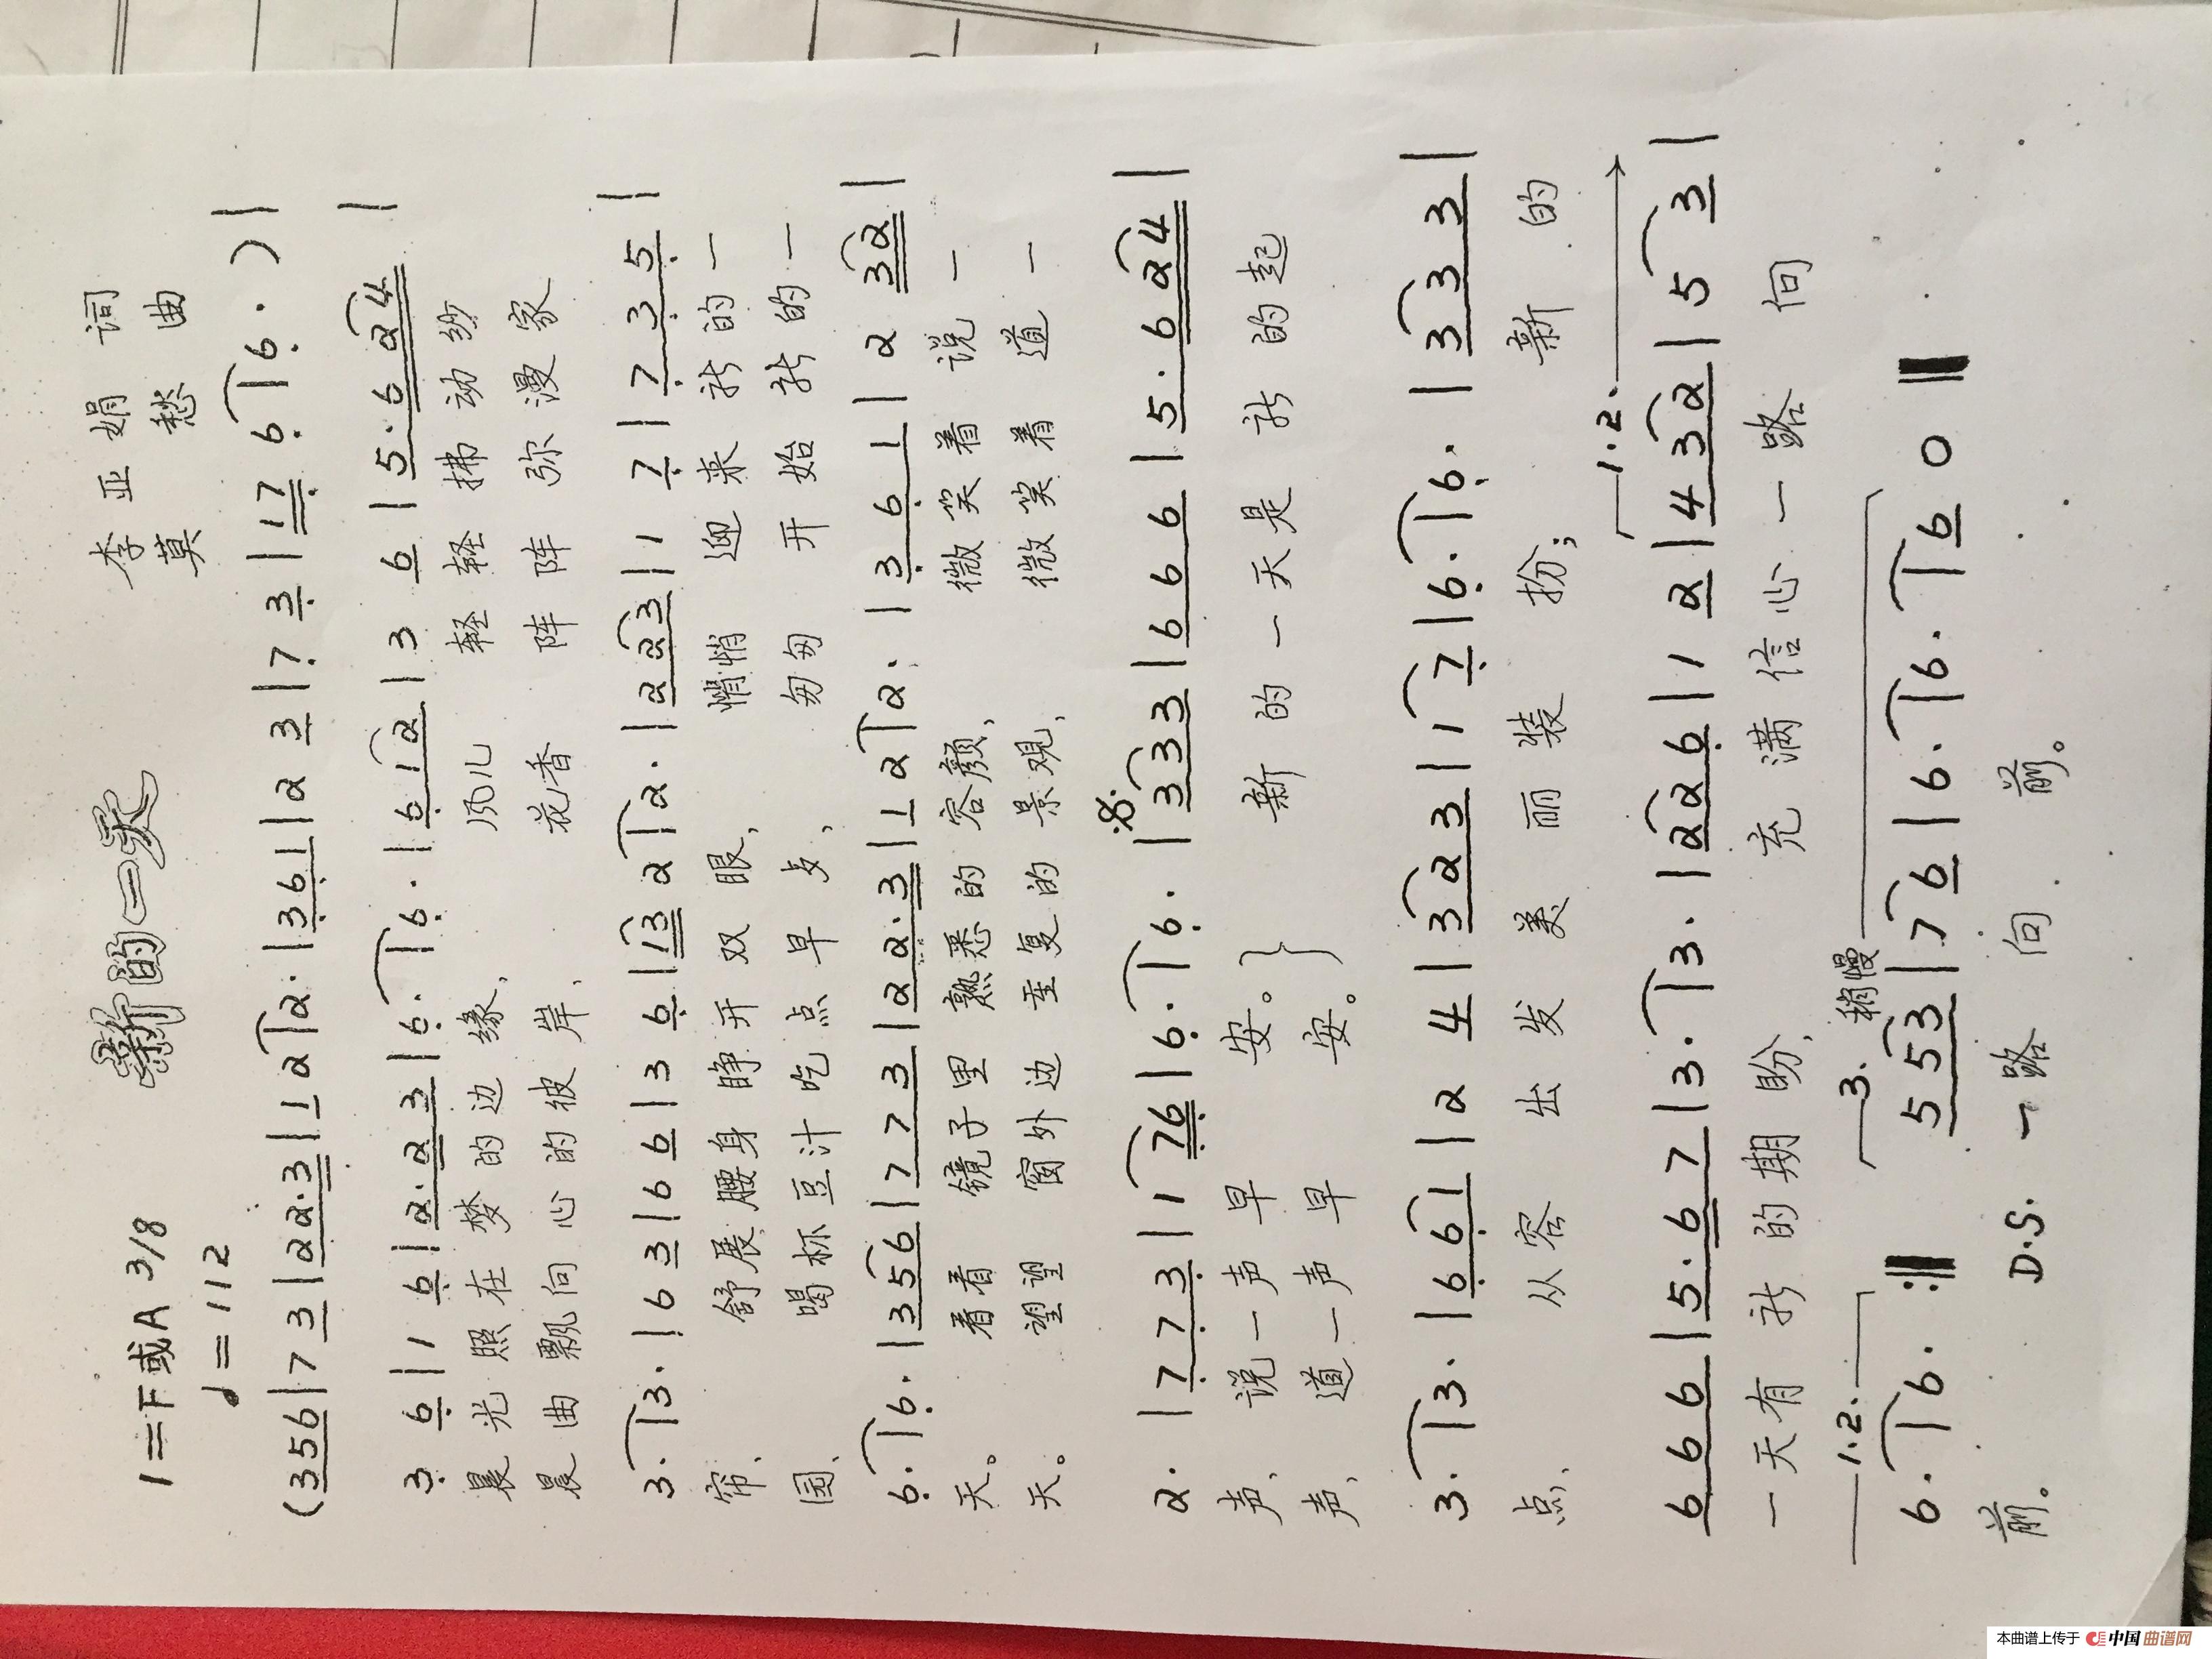 新的一天
1=F或A 3/8
♩=112
李亚娟 词
莫愁 曲
(356|73|22·3|12|2·|361|23|73|17|6|6·)|
36|16|2·23|6·|6·|612|36|5·624|
晨光照在梦的边缘、 风儿轻轻拂动纱
晨曲飘向心的彼岸、 花香阵阵弥漫家
3·|3·|63|66|36|132|2·|223|17|735|
帘、 舒展腰身睁开双眼, 悄悄迎来新的一
园、 喝杯豆汁吃点早点, 匆匆开始新的一
6·|6·|356|773|22·3|12|2·|361|232|
天。 看看镜子里熟悉的容颜, 微笑着说一
天。 望望窗外边重复的景观, 微笑着道一
2·|773|176|6·|6·|333|666|5·624|
声、说一声早安。 新的一天是新的起
声、道一声早安。
3·|3·|661|24|323|17|6·|6·|333|
点、 从容出发美丽装扮; 新的
1.2.
666|5·67|3·|3·|226|12|432|53|
一天有新的期盼, 充满信心一路向
1.2.
3.
稍慢
6·|6·:‖ 553|76|6·|6·|60‖
前。 D.S. 一路向前。
本曲谱上传于 中国曲谱网